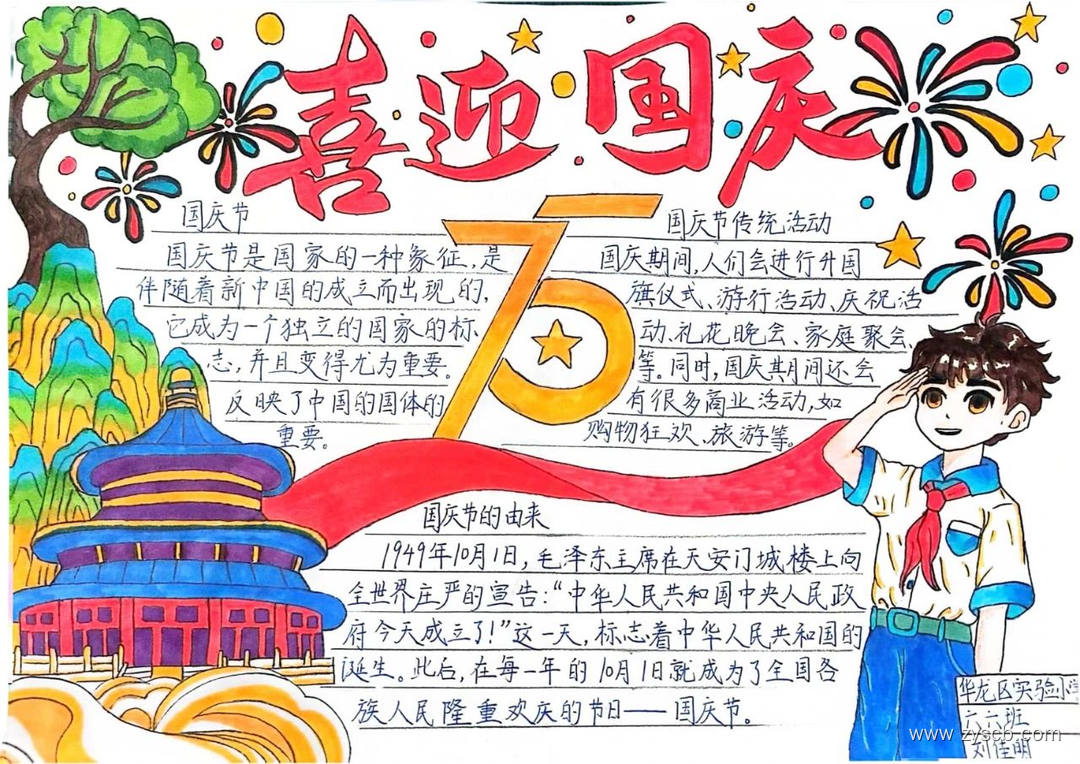 喜迎国庆
75
国庆节
国庆节是国家的一种象征,是
伴随着新中国的成立而出现的,
它成为一个独立的国家的标
志,并且变得尤为重要。
反映了中国的国体的
重要。
国庆节传统活动
国庆期间,人们会进行升国
旗仪式、游行活动、庆祝活
动、礼花晚会、家庭聚会
等。同时,国庆期间还会
有很多商业活动,如
购物狂欢、旅游等。
国庆节的由来
1949年10月1日,毛泽东主席在天安门城楼上向
全世界庄严的宣告:“中华人民共和国中央人民政
府今天成立了!”这一天,标志着中华人民共和国的
诞生。此后,在每一年的10月1日就成为了全国各
族人民隆重欢庆的节日——国庆节。
华龙区实验小学
六六班
刘佳明
www.zyscb.com